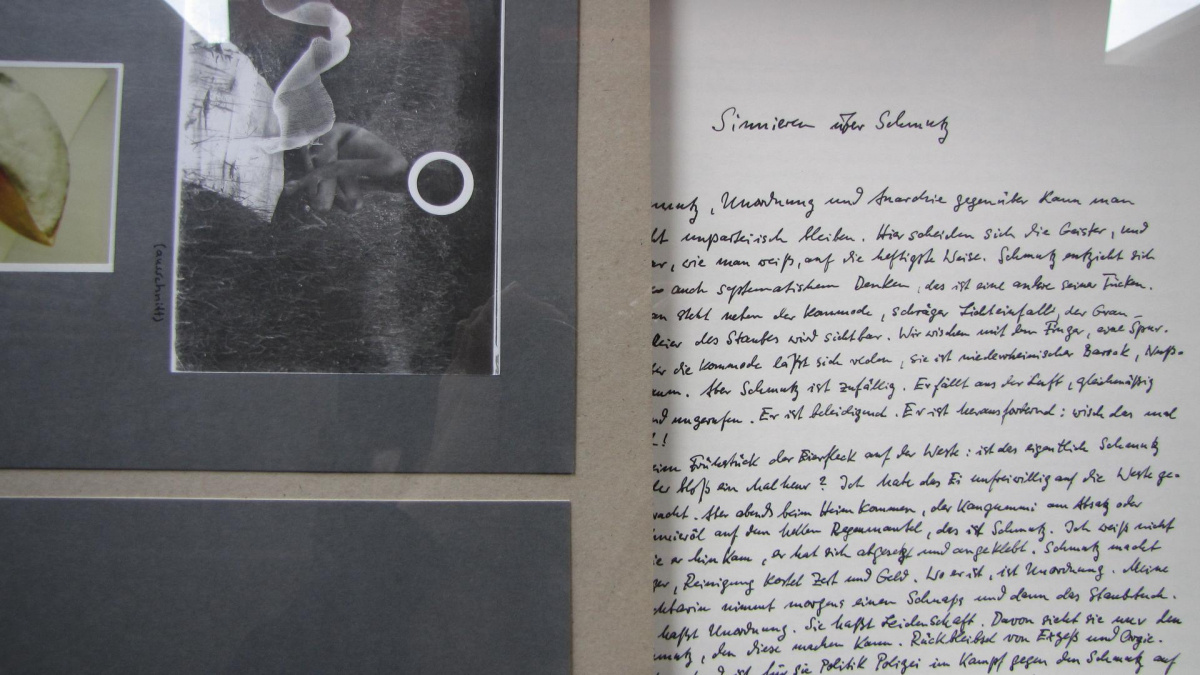 (ausschnitt)
Sinnieren über Schmutz
mutz, Unordnung und Anarchie gegenüber kann man
ht unparteiisch bleiben. Hier scheiden sich die Geister, und
ar, wie man weiß, auf die heftigste Weise. Schmutz entzieht sich
auch systematischem Denken, das ist eine andere seiner Tücken.
an steht neben der Kommode, schräger Lichteinfall, der Grau-
leier des Staubes wird sichtbar. Wir wischen mit dem Finger, eine Spur.
ber die Kommode läßt sich reden, sie ist niederrheinischer Barock, Nuß-
aum. Aber Schmutz ist zufällig. Er fällt aus der Luft, gleichmäßig
nd ungerufen. Er ist beleidigend. Er ist herausfordernd: wisch das mal
!
eim Frühstück der Eierfleck auf der Weste: ist das eigentlich Schmutz
der bloß ein Malheur? Ich habe das Ei unfreiwillig auf die Weste ge-
racht. Aber abends beim Heimkommen, der Kaugummi am Absatz oder
auf dem hellen Regenmantel, das ist Schmutz. Ich weiß nicht
ie er hin kam, er hat sich abgesetzt und angeklebt. Schmutz macht
ger, Reinigung kostet Zeit und Geld. Wo er ist, ist Unordnung. Meine
nimmt morgens einen Schnaps und dann das Staubtuch.
haßt Unordnung. Sie haßt Leidenschaft. Davon sieht sie nur den
mutz, den diese machen kann. Rückbleibsel von Exzeß und Orgie.
ist für sie Politik Polizei im Kampf gegen den Schmutz auf